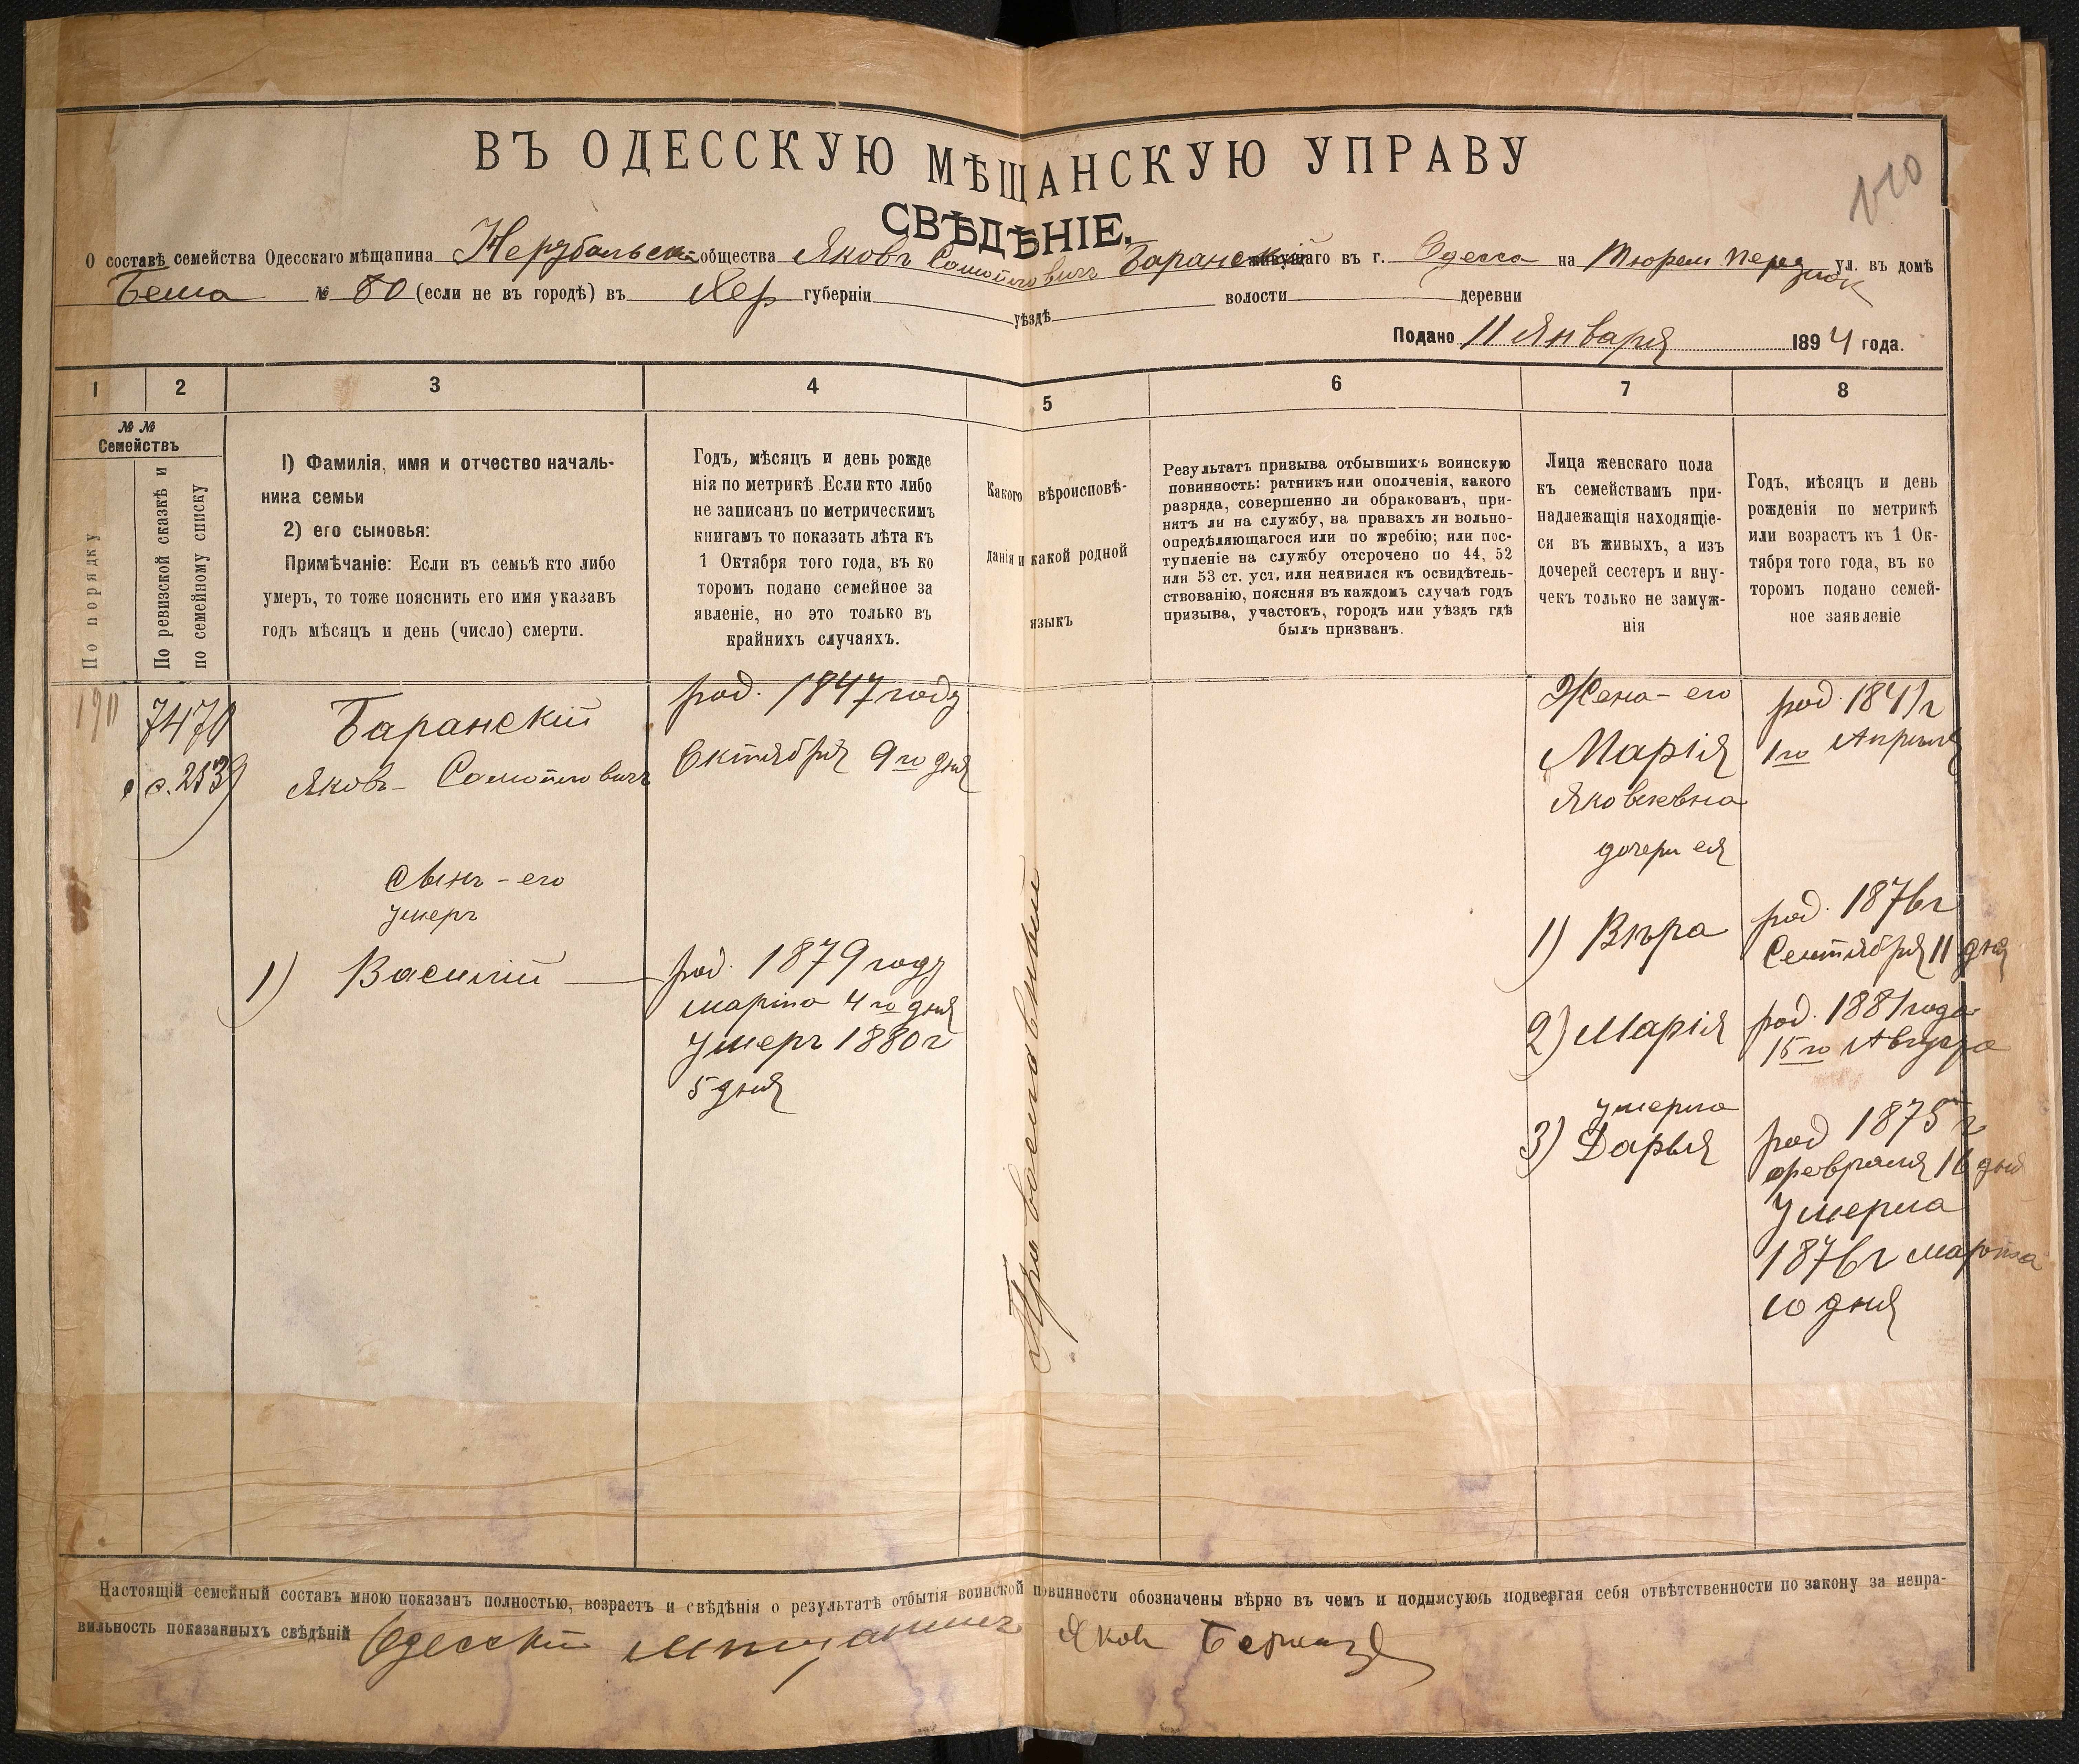 ВЪ ОДЕССКУЮ МѢЩАНСКУЮ УПРАВУ
СВѢДѢНІЕ.
О составѣ семейства Одесскаго мѣщанина Нерубальск общества Яковъ Самойловичъ Баранскій живущаго въ г. Одесса на Тюрем переулок ул. въ домѣ
№ 80 (если не въ городѣ) въ Хер губерніи уѣздѣ волости деревни
Подано 11 Января 1894 года.
1 2 3 4 5 6 7 8
№ № Семействъ
По порядку
По ревизской сказкѣ и по семейному списку
1) Фамилія, имя и отчество началь-
ника семьи
2) его сыновья:
Примѣчаніе: Если въ семьѣ кто либо
умеръ, то тоже пояснить его имя указавъ
годъ мѣсяцъ и день (число) смерти.
Годъ, мѣсяцъ и день рожде
нія по метрикѣ Если кто либо
не записанъ по метрическимъ
книгамъ то показать лѣта къ
1 Октября того года, въ ко
торомъ подано семейное за
явленіе, но это только въ
крайнихъ случаяхъ.
Какого вѣроисповѣ-
данія и какой родной
языкъ
Результатъ призыва отбывшихъ воинскую
повинность: ратникъ или ополченія, какого
разряда, совершенно ли обракованъ, при-
нятъ ли на службу, на правахъ ли вольно-
опредѣляющагося или по жребію; или пос-
тупленіе на службу отсрочено по 44, 52
или 53 ст. уст. или неявился къ освидѣтель-
ствованію, поясняя въ каждомъ случаѣ годъ
призыва, участокъ, городъ или уѣздъ гдѣ
былъ призванъ.
Лица женскаго пола
къ семействамъ при-
надлежащія находящіе-
ся въ живыхъ, а изъ
дочерей сестеръ и вну-
чекъ только не замуж-
нія
Годъ, мѣсяцъ и день
рожденія по метрикѣ
или возрастъ къ 1 Ок-
тября того года, въ ко
торомъ подано семей-
ное заявленіе
Баранскій
Яковъ Самойловичъ
сынъ - его
умеръ
1) Василій
род. 1847 году
Октября 9 го дня
род. 1879 году
марта 4 го дня
Умеръ 1880 г
5 дня
Православный
Жена - его
Марія
Яковлевна
дочери ея
1) Вѣра
2) Марія
умерла
3) Дарья
род. 1841 г
1 го Апреля
род. 1876 г
Сентября 11 дня
род. 1881 года
15 го Августа
род 1875 г
февраля 16 дня
Умерла
1876 г марта
10 дня
Настоящій семейный составъ мною показанъ полностью, возрастъ и свѣдѣнія о результатѣ отбытія воинской повинности обозначены вѣрно въ чемъ и подписуюсь подвергая себя отвѣтственности по закону за непра-
вильность показанныхъ свѣдѣній Одесскій мещанинъ Яков